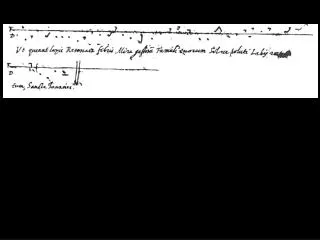 Vt queant laxis Resonare fibris, Mira Famuli tuorum Solue polluti Labij
tum, Sancte Ioannes.